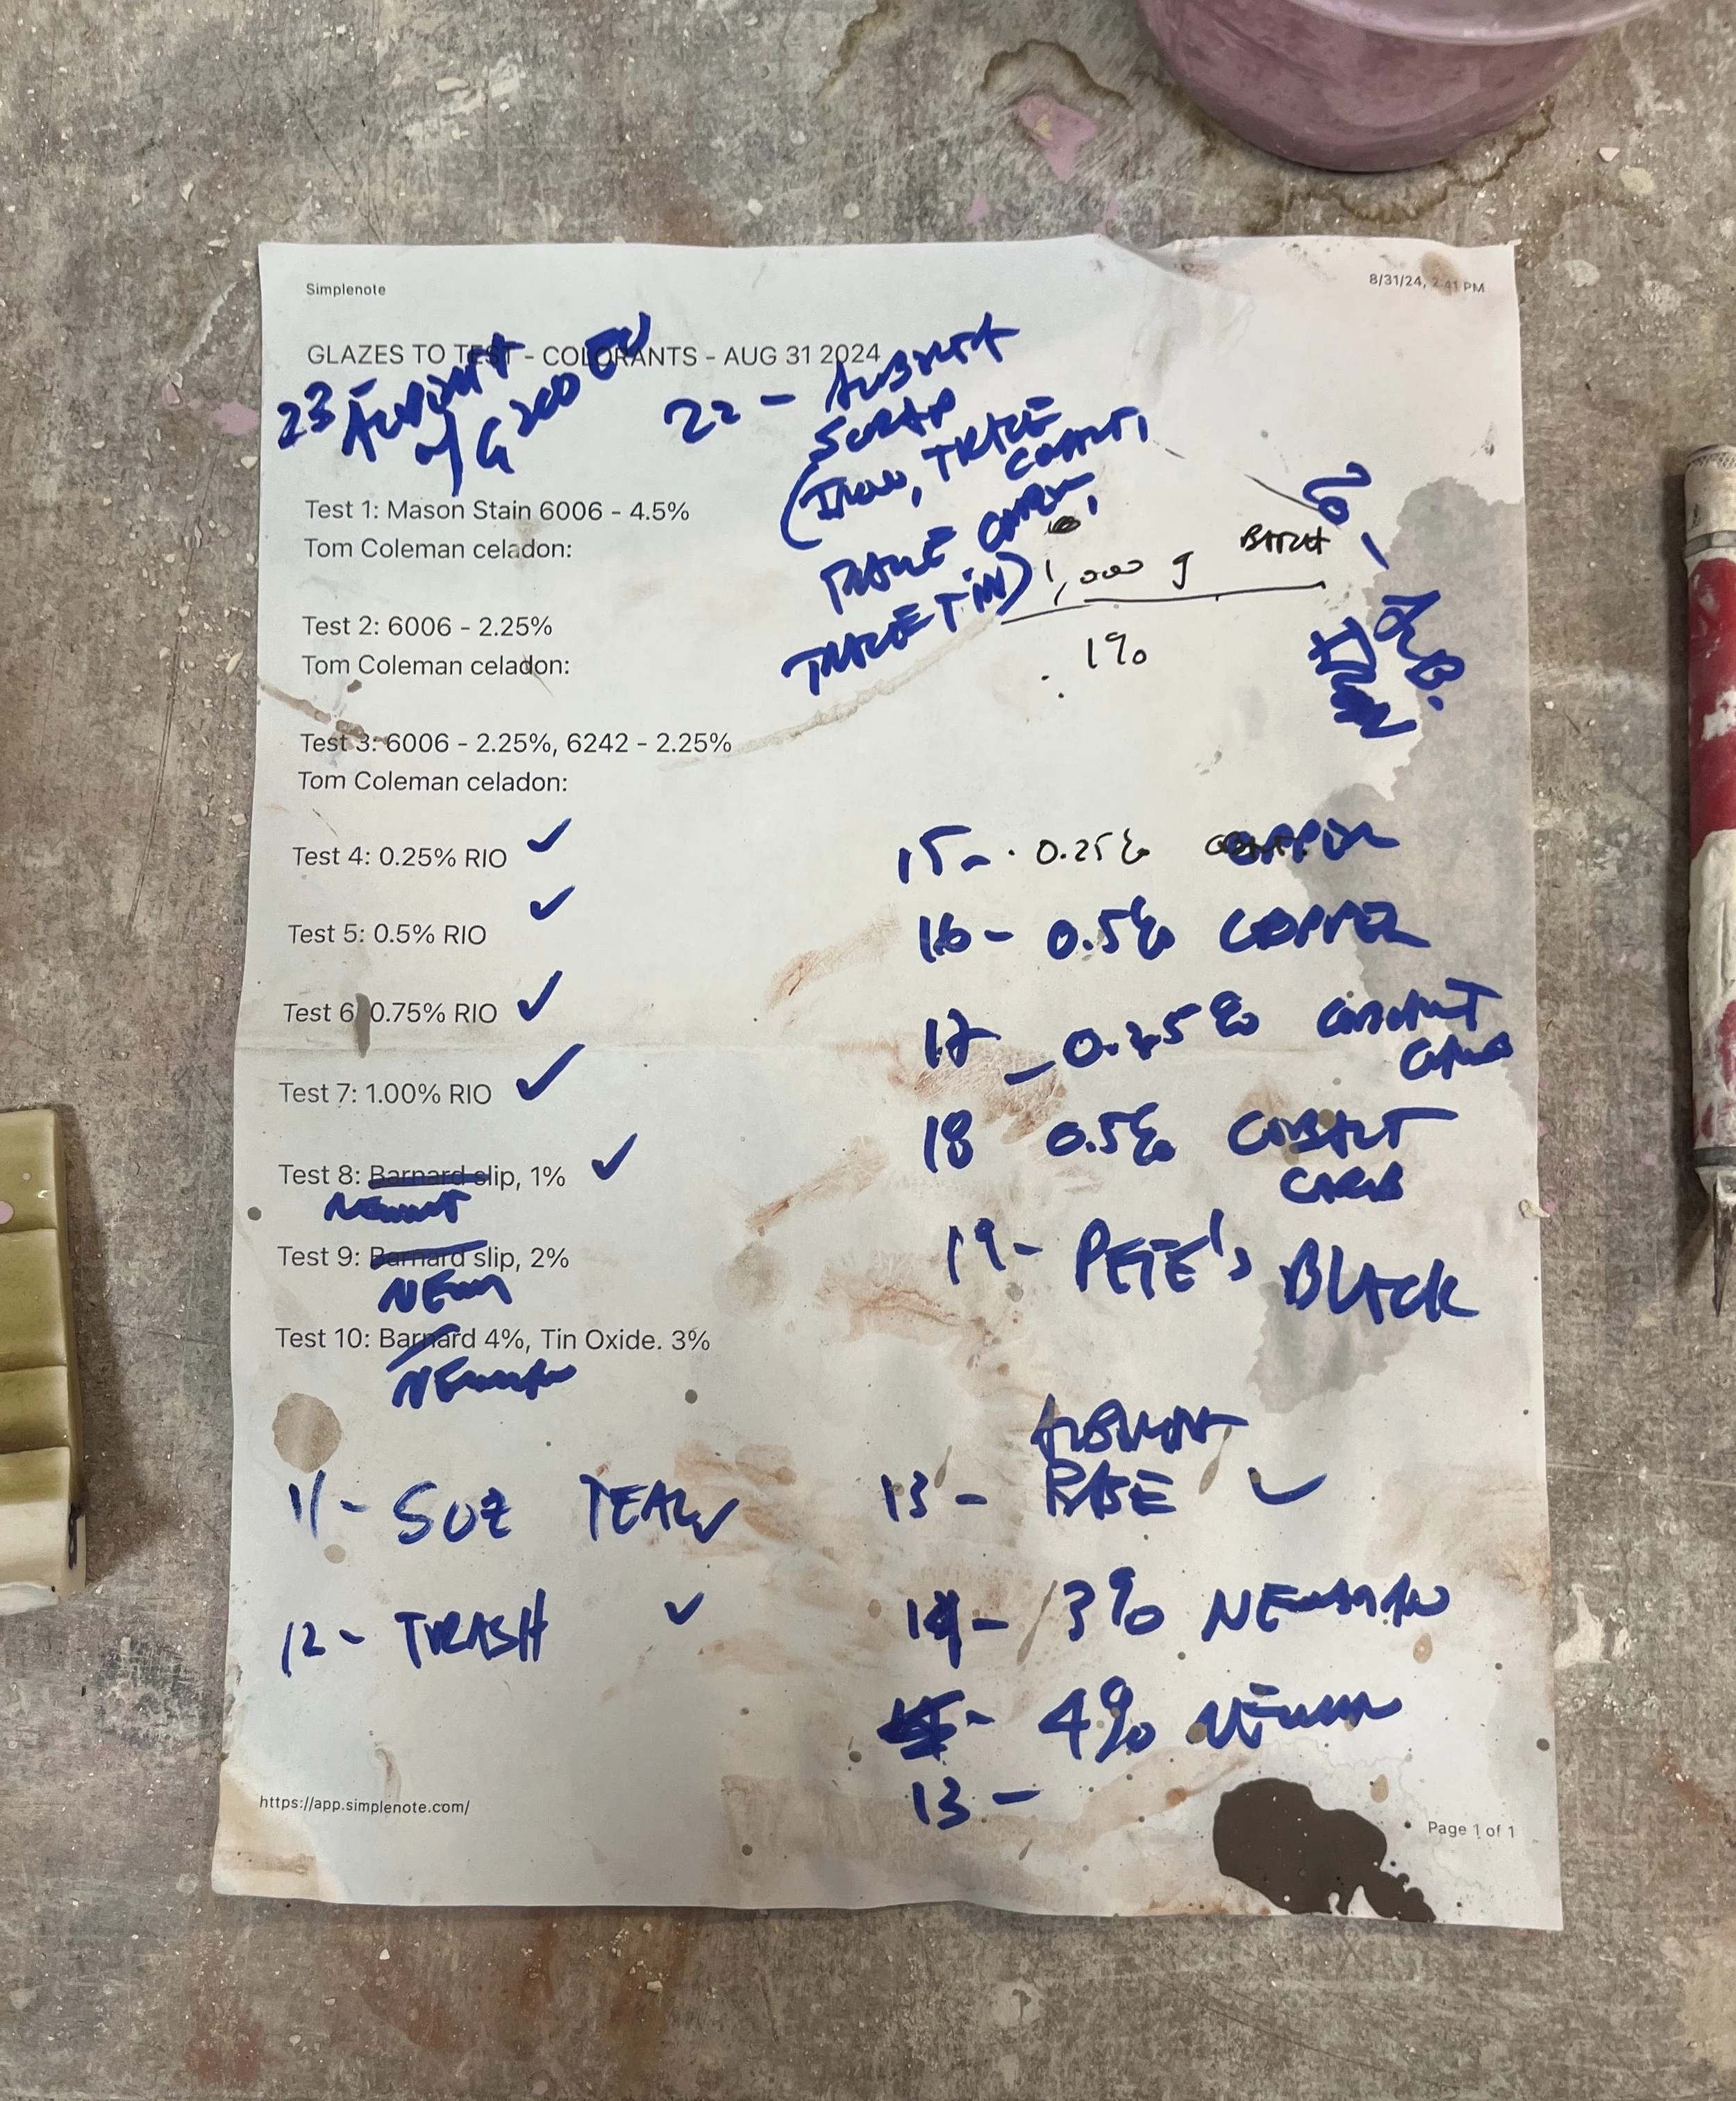 Simplenote
8/31/24, 2:41 PM
GLAZES TO TEST - COLORANTS - AUG 31 2024
23
w/ G200 EU
22 -
SCRAP
(IRON, TRACE
COBALT,
TRACE
TRACE TIN)
1,000 g BATCH
1%
20 - ALB.
IRON
Test 1: Mason Stain 6006 - 4.5%
Tom Coleman celadon:
Test 2: 6006 - 2.25%
Tom Coleman celadon:
Test 3: 6006 - 2.25%, 6242 - 2.25%
Tom Coleman celadon:
Test 4: 0.25% RIO ✓
Test 5: 0.5% RIO ✓
Test 6: 0.75% RIO ✓
Test 7: 1.00% RIO ✓
Test 8: Barnard slip, 1% ✓
Test 9: Barnard slip, 2%
Test 10: Barnard 4%, Tin Oxide. 3%
NEWMAN
11 - SUZ TEAL ✓
12 - TRASH ✓
15 - 0.25% COPPER
16 - 0.5% COPPER
17 - 0.25% COBALT
CARB
18 0.5% COBALT
CARB
19 - PETE's BLACK
13 - BASE ✓
14 - 3% NEWMAN
4% NEWMAN
13 -
https://app.simplenote.com/
Page 1 of 1